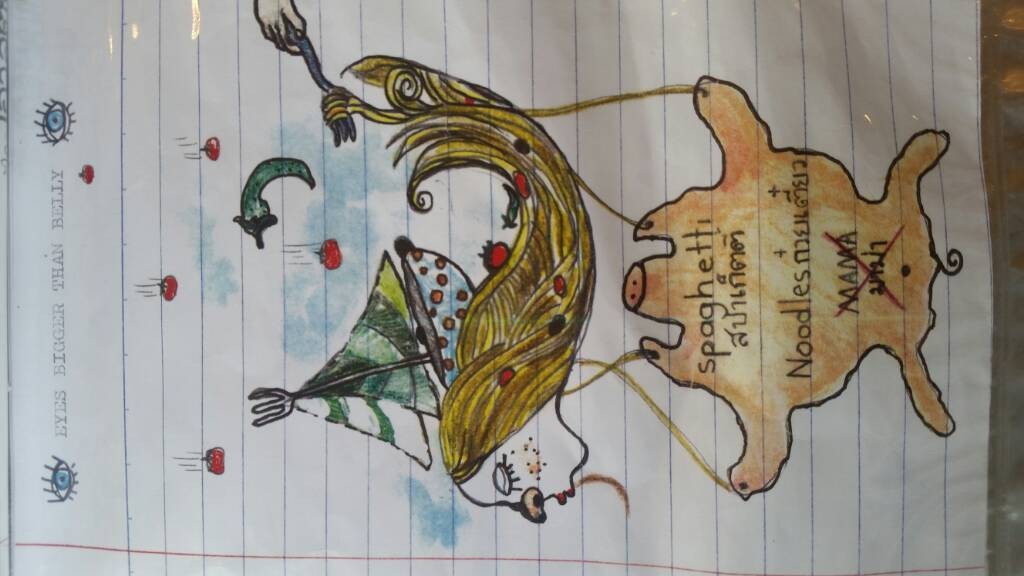 EYES BIGGER THAN BELLY
spaghetti
สปาเก็ตตี้
Noodles ก๋วยเตี๋ยว
MAMA
มาม่า